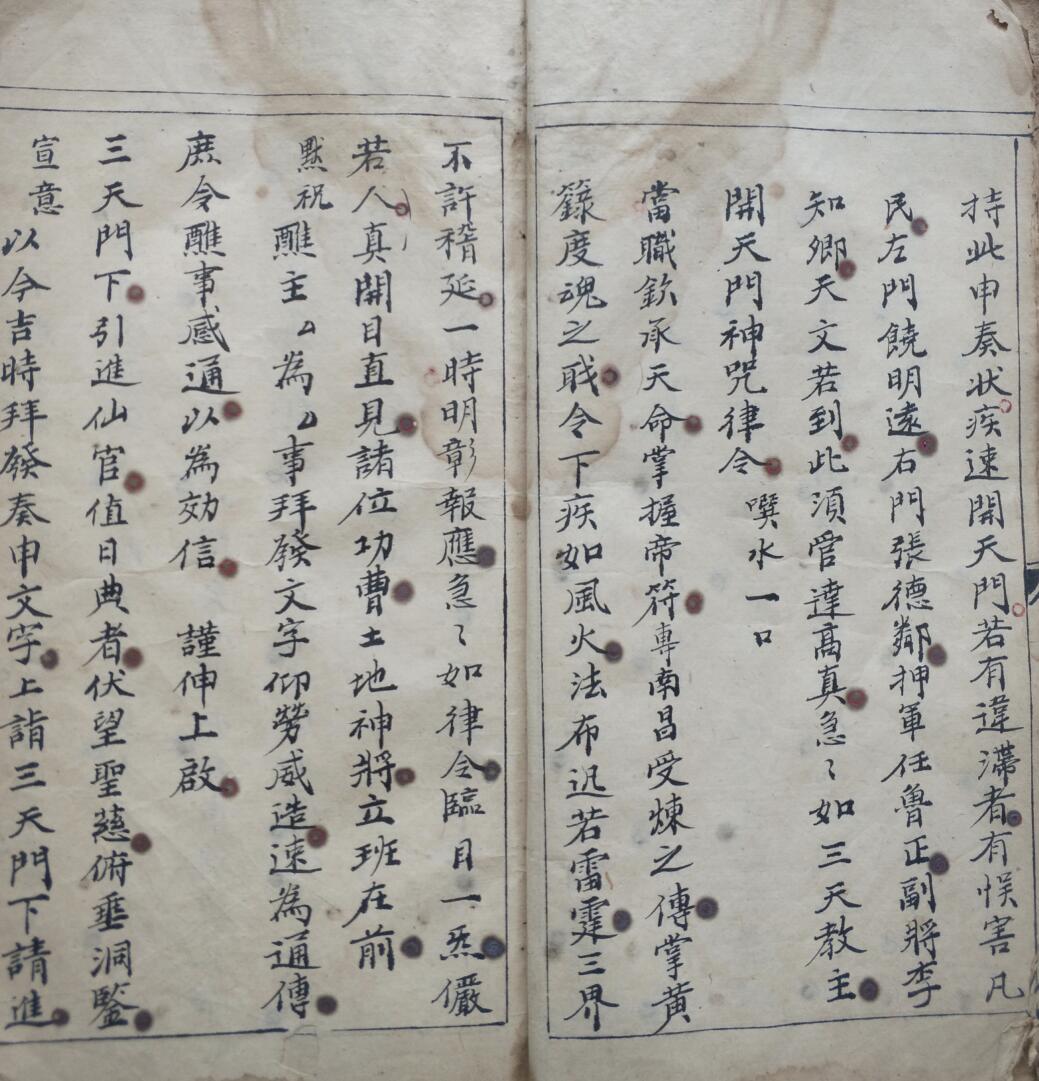 持此申奏狀疾速開天門若有違滯者有悮害凡
民左門饒明遠右門張德鄰押軍任魯正副將李
知卿天文若到此須官達高真急〻如三天教主
開天門神咒律令 噀水一口
當職欽承天命掌握帝符專南昌受煉之傳掌黃
籙度魂之職令下疾如風火法布迅若雷霆三界
不許稽延一時明彰報應急〻如律令臨目一炁儼
若人真開目直見諸位功曹土地神將立班在前
默祝 醮主厶為厶事拜發文字仰勞威造速為通傳
庶令醮事感通以為効信 謹伸上啟
三天門下引進仙官值日典者伏望聖慈俯垂洞鑒
宣意 以今吉時拜發奏申文字上詣三天門下請進